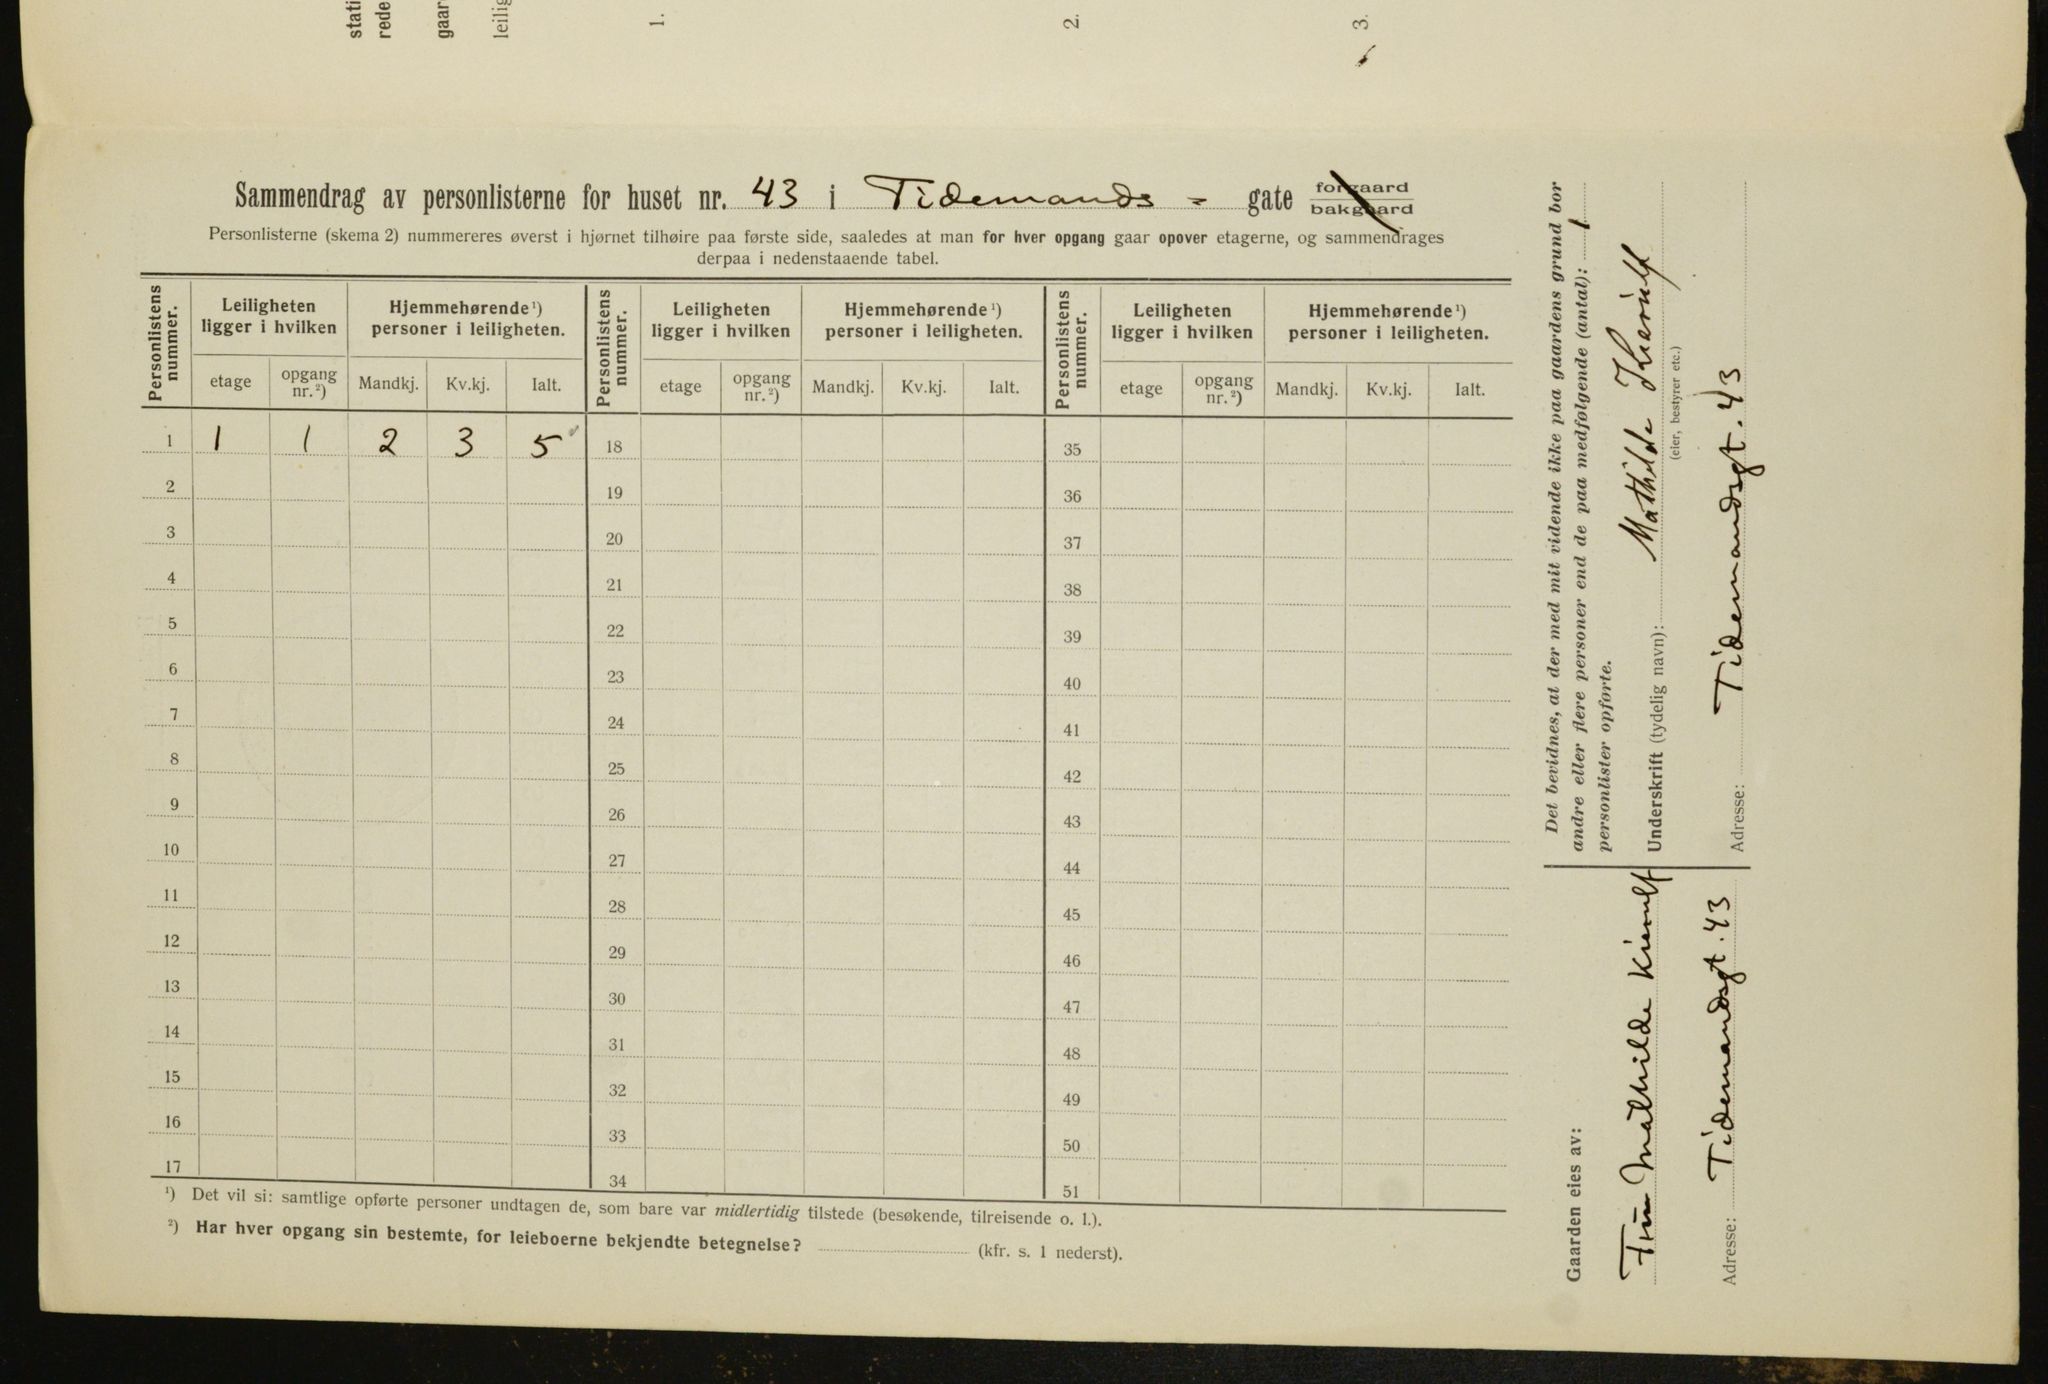 stati
rede
gaar
leilig
1.
2.
3.
Sammendrag av personlisterne for huset nr. 43 i Tidemands - gate forgaard bakgaard
Personlisterne (skema 2) nummereres øverst i hjørnet tilhøire paa første side, saaledes at man for hver opgang gaar opover etagerne, og sammendrages
derpaa i nedenstaaende tabel.
Personlistens nummer. Leiligheten ligger i hvilken Hjemmehørende ¹) personer i leiligheten. Personlistens nummer. Leiligheten ligger i hvilken Hjemmehørende ¹) personer i leiligheten. Personlistens nummer. Leiligheten ligger i hvilken Hjemmehørende ¹) personer i leiligheten.
etage opgang nr. ²) Mandkj. Kv.kj. Ialt. etage opgang nr. ²) Mandkj. Kv.kj. Ialt. etage opgang nr. ²) Mandkj. Kv.kj. Ialt.
1 1 1 2 3 5 18 35
2 19 36
3 20 37
4 21 38
5 22 39
6 23 40
7 24 41
8 25 42
9 26 43
10 27 44
11 28 45
12 29 46
13 30 47
14 31 48
15 32 49
16 33 50
17 34 51
¹) Det vil si: samtlige opførte personer undtagen de, som bare var midlertidig tilstede (besøkende, tilreisende o. l.).
²) Har hver opgang sin bestemte, for leieboerne bekjendte betegnelse? (kfr. s. 1 nederst).
Det bevidnes, at der med mit vidende ikke paa gaardens grund bor
andre eller flere personer end de paa medfølgende (antal): 1
personlister opførte.
Underskrift (tydelig navn): Mathilde Kierulf
(eier, bestyrer etc.)
Adresse: Tidemandsgt. 43
Gaarden eies av:
Fru Mathilde Kierulf
Adresse: Tidemandsgt. 43